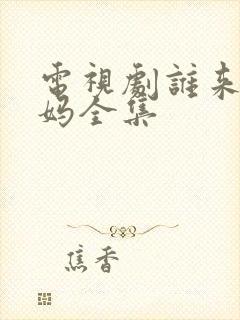 電視劇誰来
妈全集
焦香